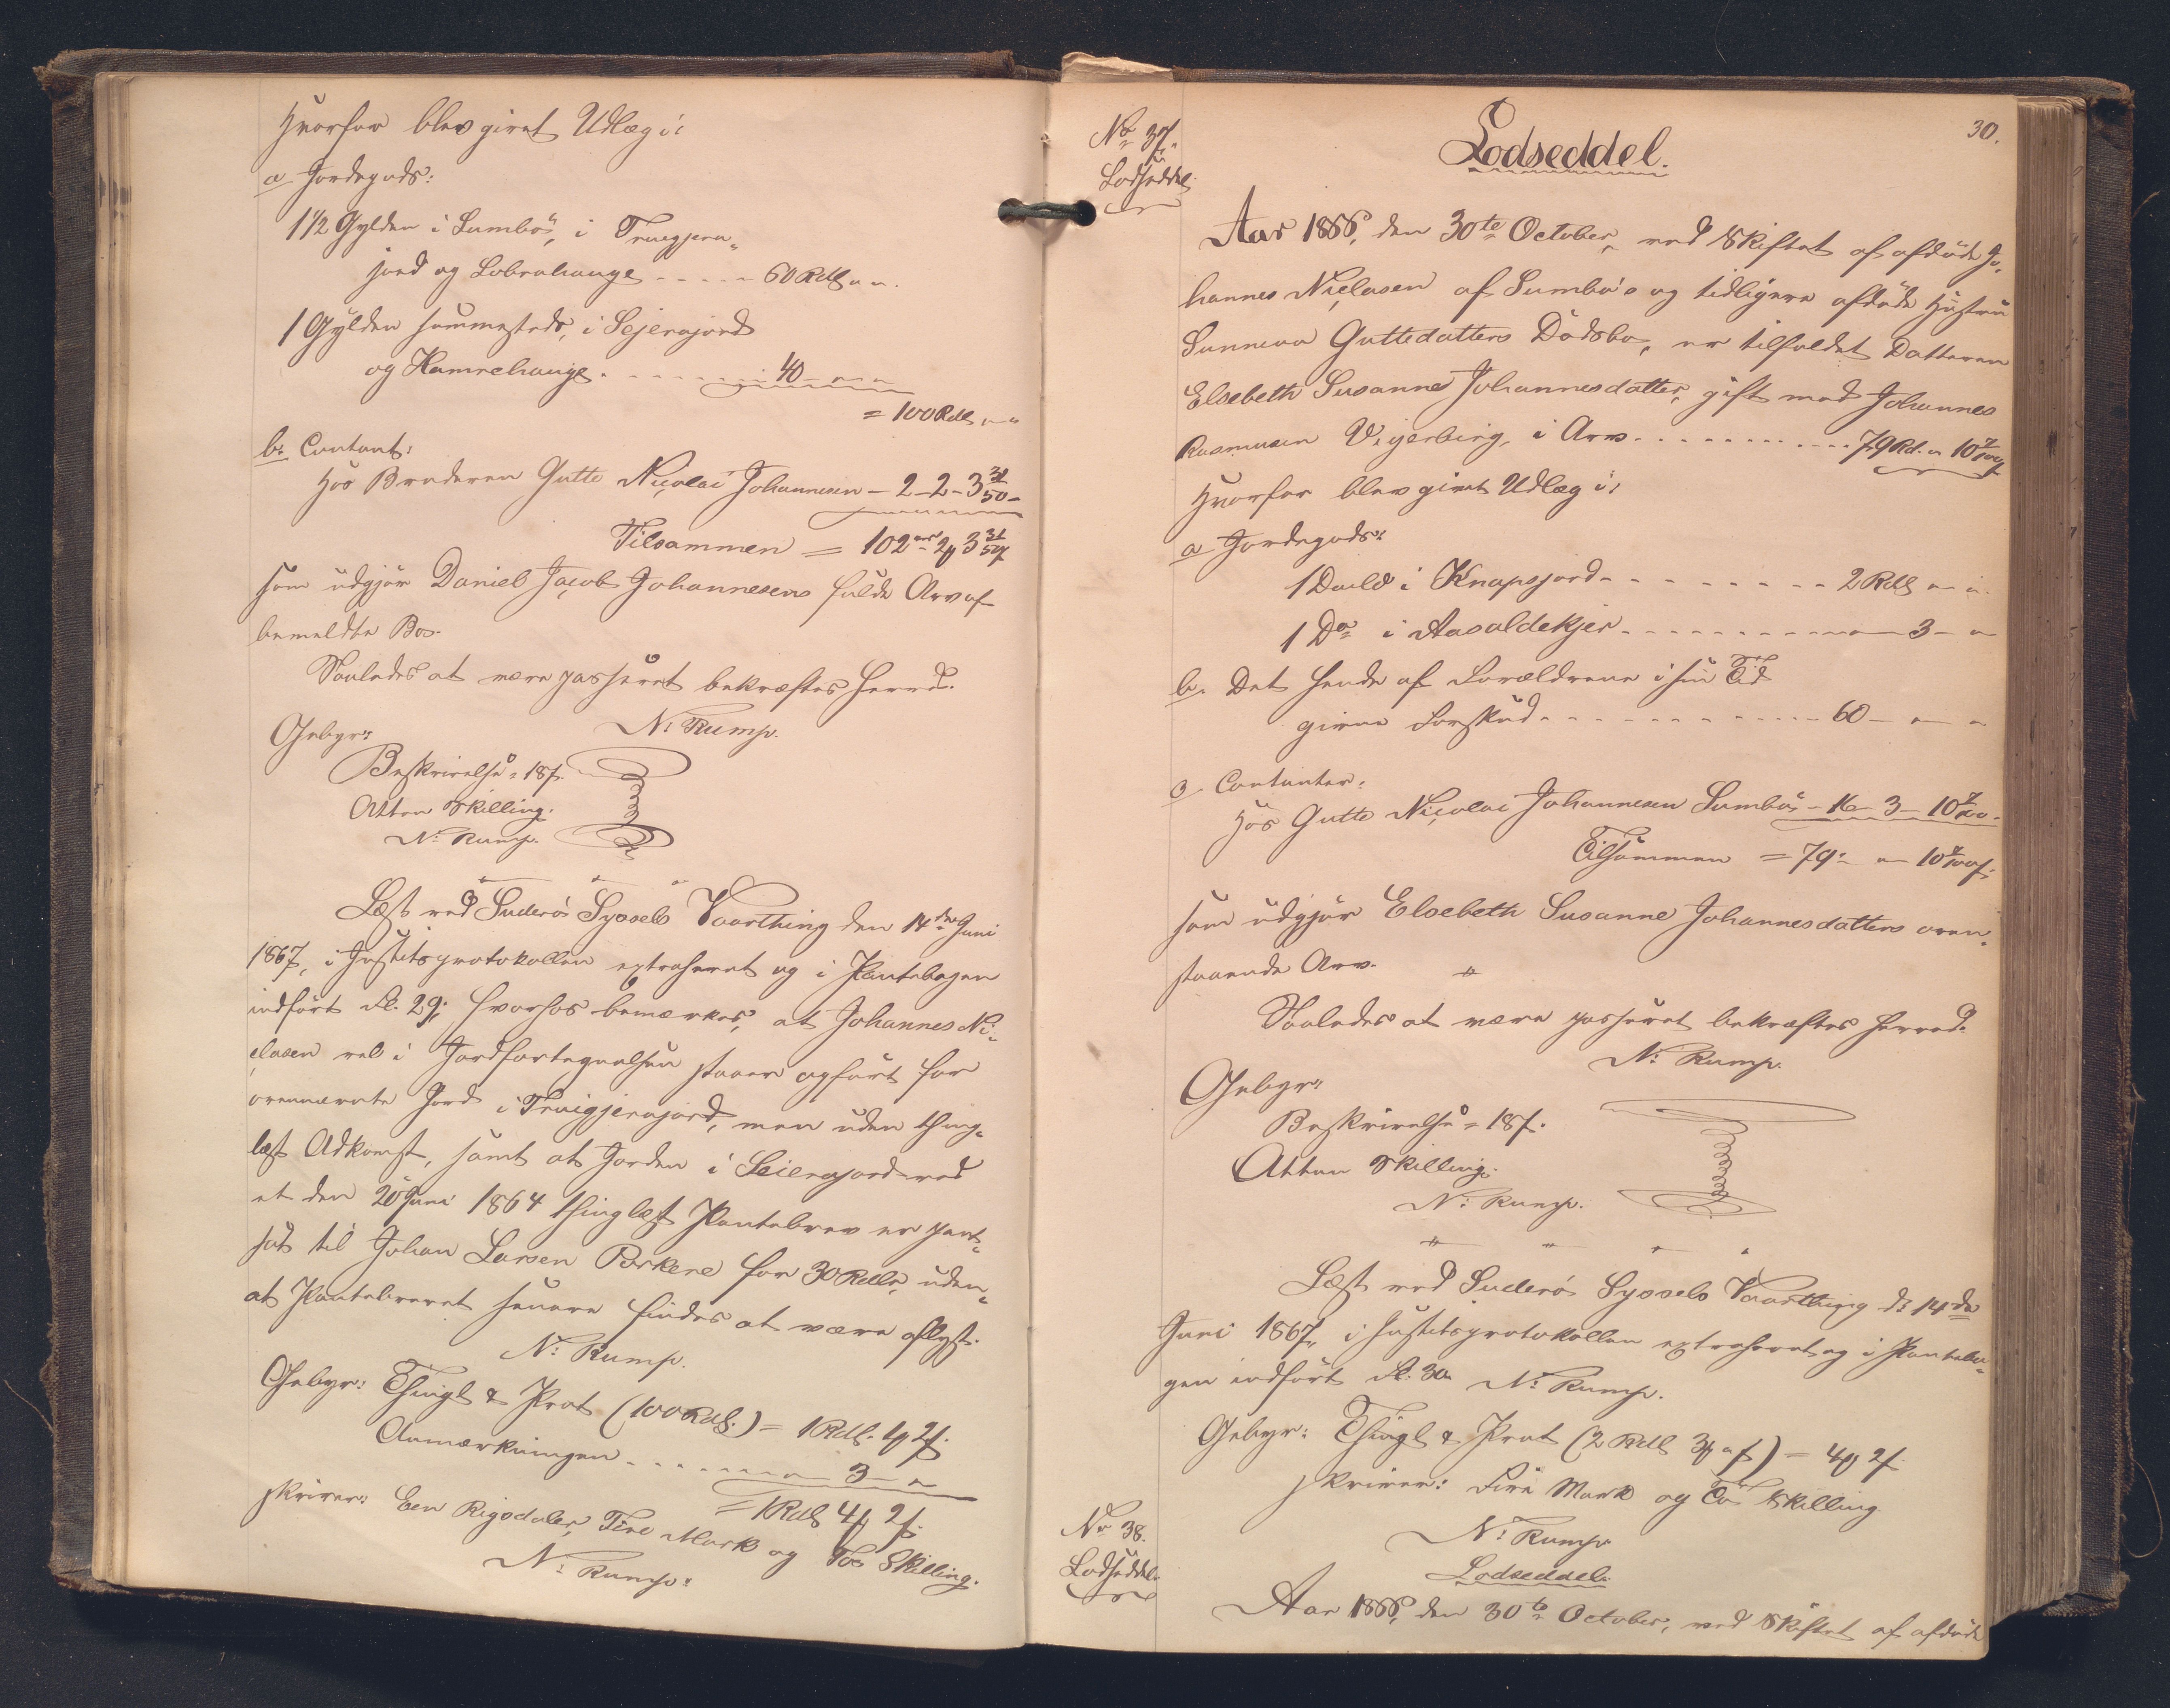 Hvorfor blev givet Udlæg i:
a Jordegods:
1 1/2 Gylden i Sumbö, i Truigjera„
jord og Lobrahauge - - - - - 60 Rdl „ „.
1 Gylden sammesteds, i Sejerajord
og Hamrehauge. - - - - - - - 40 - „ - „
= 100 Rdl „ - „
b. Contant:
Hos Broderen Gutte Nicolai Johannesen - 2 - 2 - 3 31/50 -
Tilsammen = 102 „ 2 # 3 31/50 ß
som udgjör Daniel Jacob Johannesens fulde Arv af
bemeldte Bo.
Saaledes at være passeret bekræftes herved.
N: Rump.
Gebyr:
Beskrivelse = 18 ß.
Atten Skilling.
N: Rump.
Læst ved Suderö Syssels Vaarthing den 14de Juni
1867, i Justitsprotokollen extraheret og i Pantebogen
indfört Fl. 29; hvorhos bemærkes, at Johannes Ni„
clasen vel i Jordfortegnelsen staaer opfört for
ovennævnte Jord i Truigjerajord, men uden thing„
læst Adkomst, samt at Jorden i Seierajord ved
et den 20 Juni 1864 thinglæst Pantebrev er pant„
sat til Johan Larsen Porkere for 30 Rdlr, uden„
at Pantebrevet senere findes at være aflyst.
N: Rump.
Gebyr: Thingl & Prot (100 Rdl.) = 1 Rdl. 1 # 2 ß.
Anmærkningen - - - - - - - „ 3 - „
= 1 Rdl 4 # 2 ß.
skriver: Een Rigsdaler, Fire Mark og To Skilling.
N: Rump.
30.
No 37.
Lodseddel
Lodseddel.
Aar 1866, den 30te October, ved Skiftet af afdöde Jo„
hannes Niclasen af Sumbö's og tidligere afdöde Hustru
Sunneva Guttedatters Dödsbo, er tilfaldet Datteren
Elsebeth Susanne Johannesdatter, gift med Johannes
Rasmusen Vijerbirg, i Arv - - - - - - - - - - 79 Rd. „ 10 7/100 ß
Hvorfor blev givet Udlæg i:
a Jordegods:
1 Duild i Knapsjord - - - - - - - - - 2 Rdl „ „.
1 Do i Aasaldekjer - - - - - - - - - „ - 3 - „
b. Det hende af Forældrene i sin Tid
givne Forskud - - - - - - - - - - - 60 - „ - „
c. Contanter:
Hos Gutte Nicolai Johannesen Sumbö - 16 - 3 - 10 7/100 -
Tilsammen = 79 - „ 10 7/100 ß.
som udgjör Elsebeth Susanne Johannesdatters oven„
staaende Arv.
Saaledes at være passeret bekræftes herved.
N: Rump.
Gebyr:
Beskrivelse = 18 ß.
Atten Skilling.
N: Rump.
Læst ved Suderö Syssels Vaarthing d: 14de
Juni 1867, i Justitsprotokollen extraheret og i Pantebo„
gen indfört Fl. 30. N: Rump.
Gebyr: Thingl & Prot (2 Rdl 3 # „ ß) = 4 # 2 ß
skriver: Fire Mark og To Skilling
N: Rump
No 38.
Lodseddel.
Lodseddel.
Aar 1866, den 30te October, ved Skiftet af afdöde